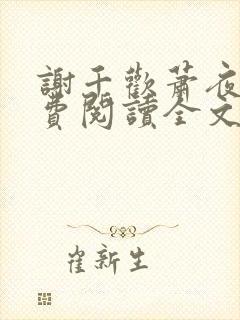 謝千歡蕭夜
費閱讀全文
崔新生